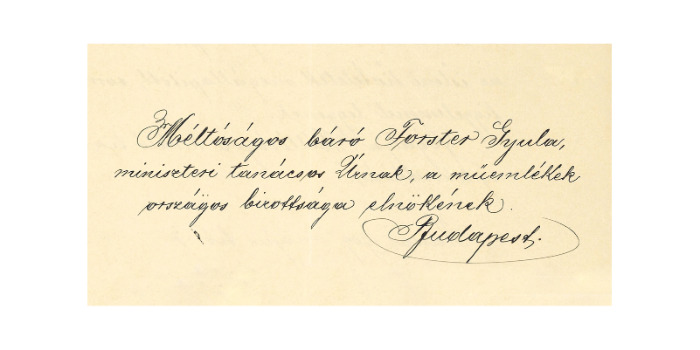 Méltóságos báró Forster Gyula,
miniszteri tanácsos Úrnak, a műemlékek
országos bizottsága elnökének.
Budapest.